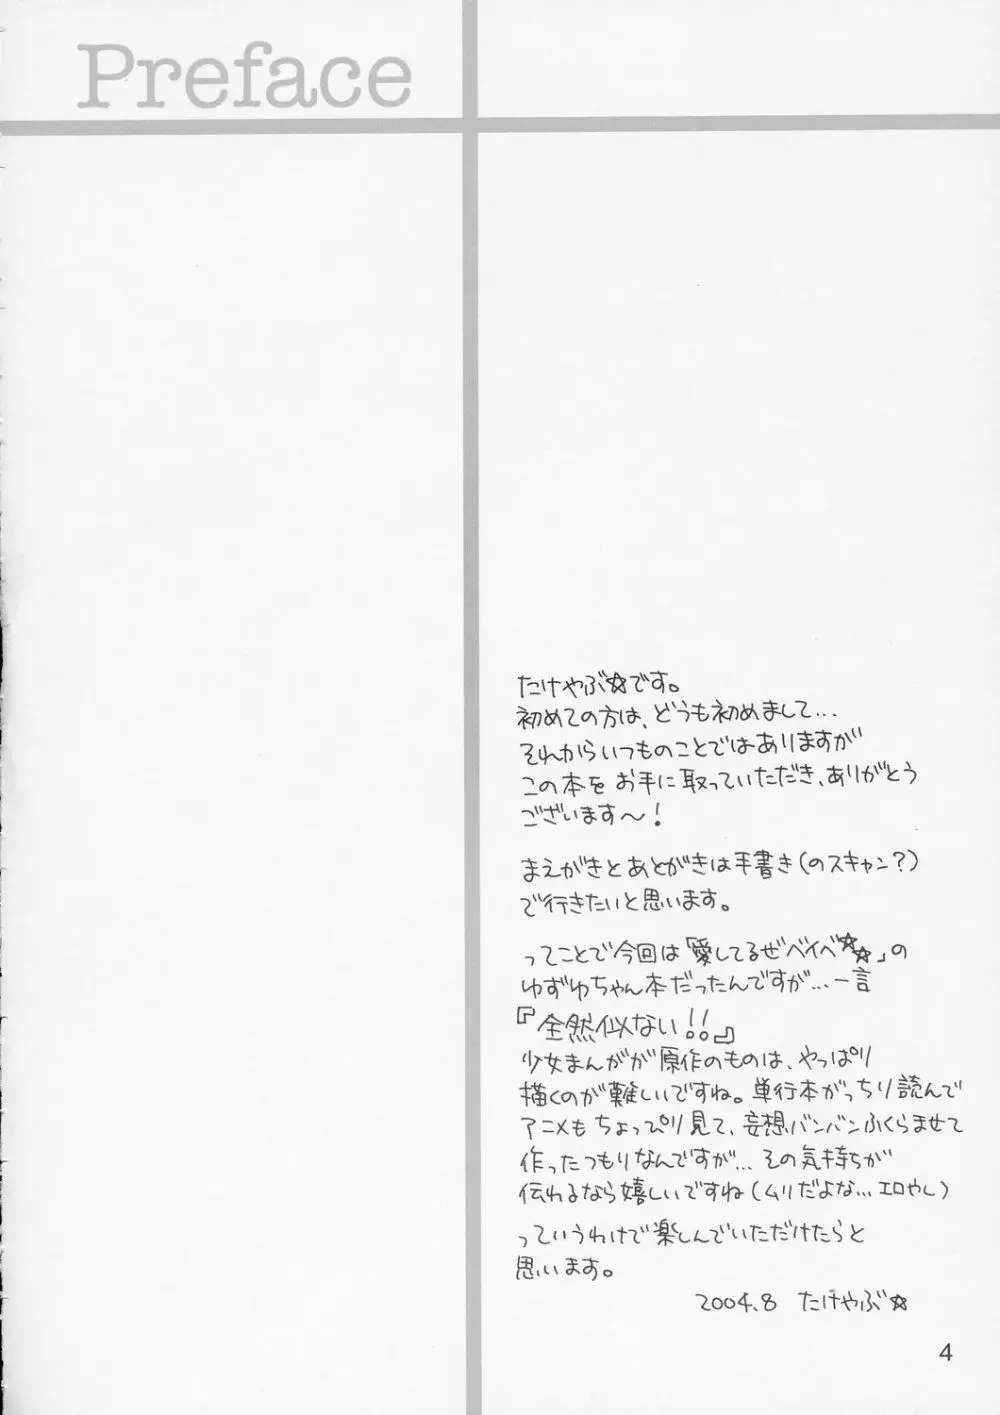 Preface
たけやぶ☆です。
初めての方は、どうも初めまして…
それからいつものことではありますが
この本をお手に取っていただき、ありがとう
ございます〜!
まえがきとあとがきは手書き(のスキャン?)
で行きたいと思います。
ってことで今回は「愛してるぜベイベ☆☆」の
ゆずゆちゃん本だったんですが…一言
『全然似ない!!』
少女まんがが原作のものは、やっぱり
描くのが難しいですね。単行本がっちり読んで
アニメもちょっぴり見て、妄想バンバンふくらませて
作ったつもりなんですが…その気持ちが
伝わるなら嬉しいですね(ムリだよな…エロやし)
っていうわけで楽しんでいただけたらと
思います。
2004.8 たけやぶ☆
4